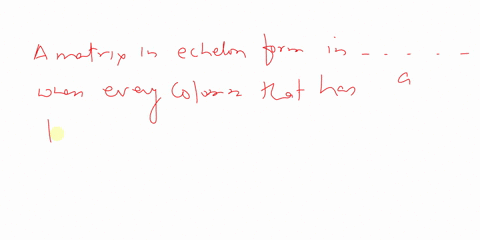 A matrix in echelon form in - - - - -
when every column that has a